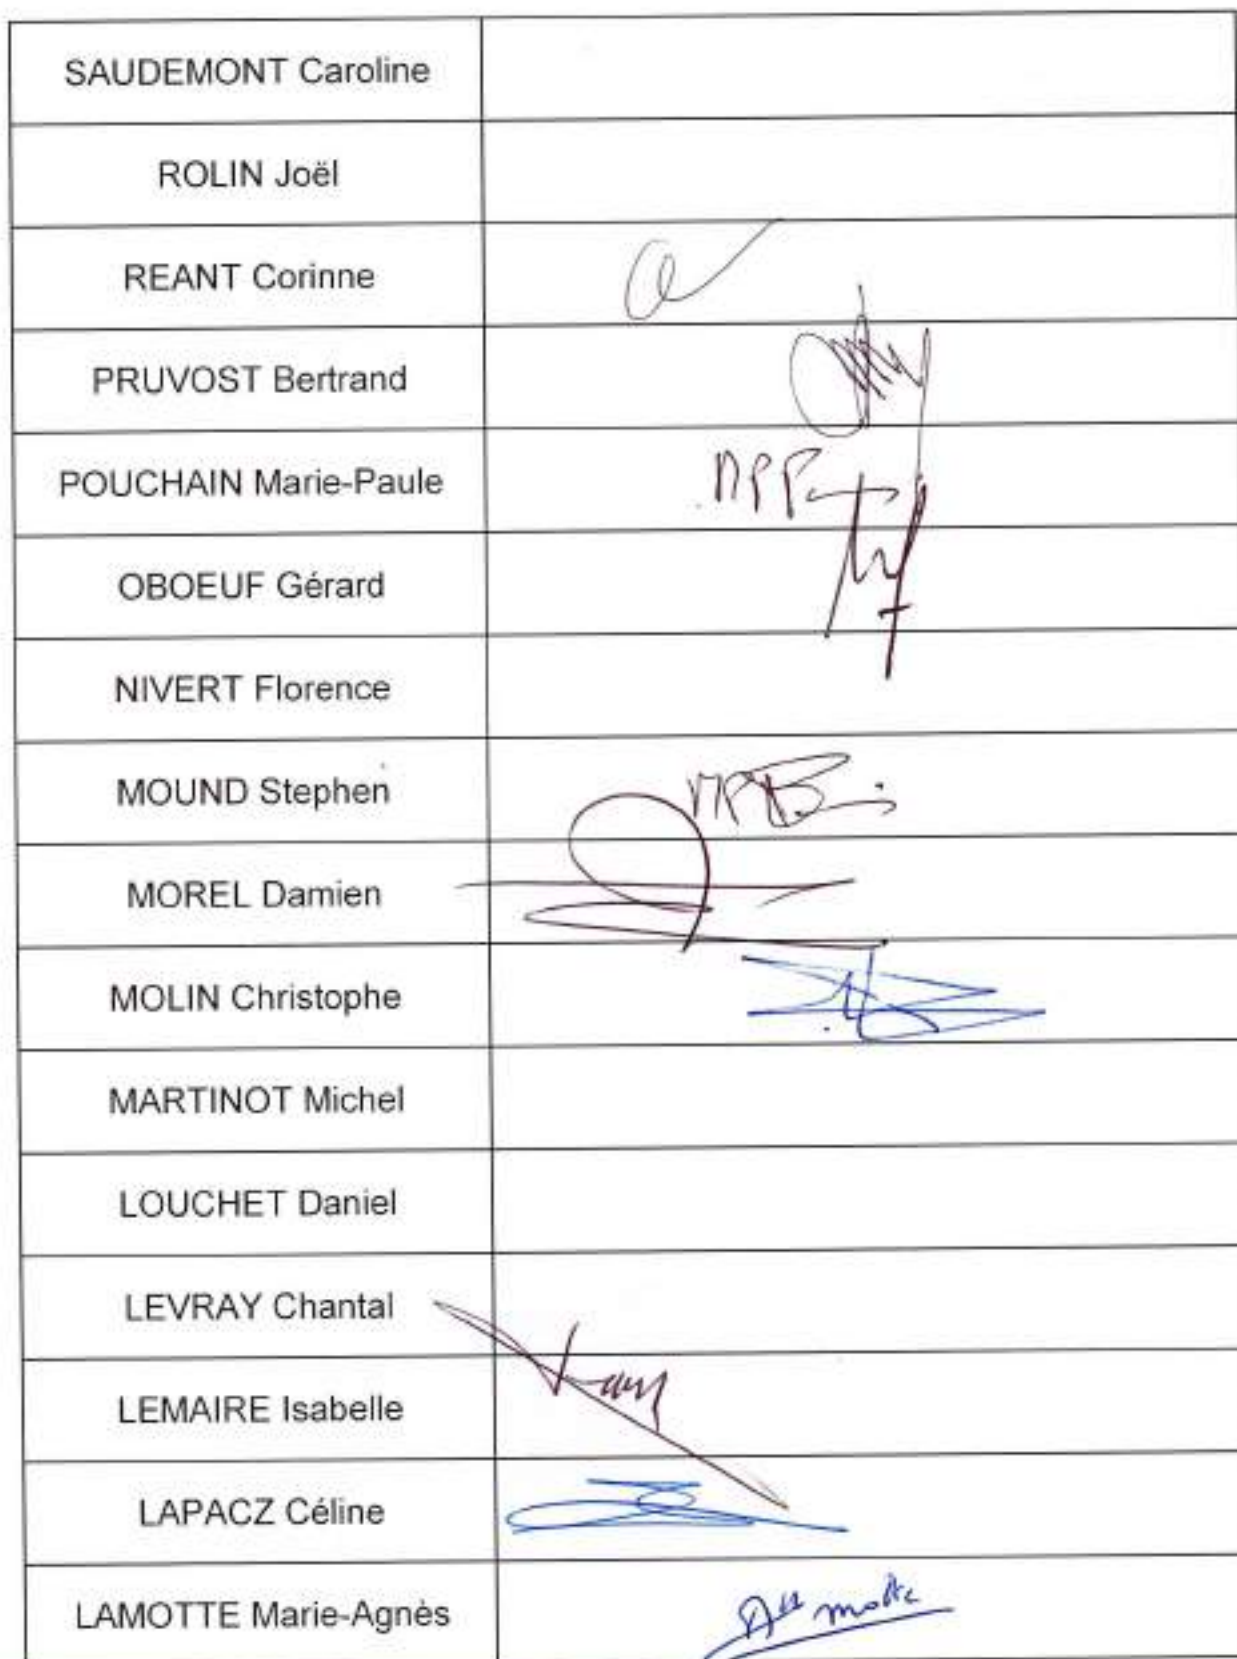 SAUDEMONT Caroline
ROLIN Joël
REANT Corinne
PRUVOST Bertrand
POUCHAIN Marie-Paule
OBOEUF Gérard
NIVERT Florence
MOUND Stephen
MOREL Damien
MOLIN Christophe
MARTINOT Michel
LOUCHET Daniel
LEVRAY Chantal
LEMAIRE Isabelle
LAPACZ Céline
LAMOTTE Marie-Agnès